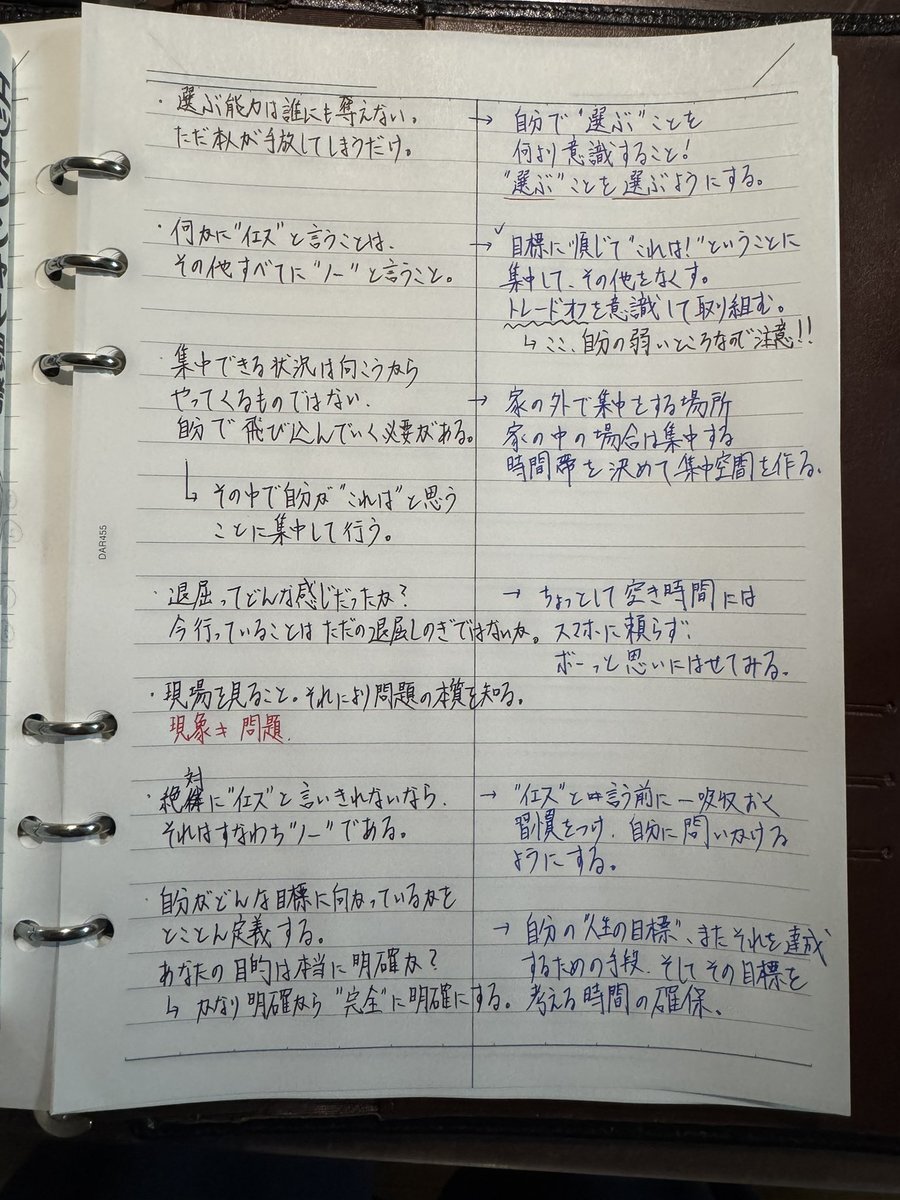 ・選ぶ能力は誰にも奪えない。
ただ本人が手放してしまうだけ。
→ 自分で"選ぶ"ことを
何より意識すること!
"選ぶ"ことを選ぶようにする。
・何かに"イエス"と言うことは、
その他すべてに"ノー"と言うこと。
→ 目標に順じて"これは!"ということに
集中して、その他をなくす。
トレードオフを意識して取り組む。
↳ ここ、自分の弱いところなので注意!!
・集中できる状況は向こうから
やってくるものではない。
自分で飛び込んでいく必要がある。
↳ その中で自分が"これは"と思う
ことに集中して行う。
→ 家の外で集中をする場所
家の中の場合は集中する
時間帯を決めて集中空間を作る。
・退屈ってどんな感じだったか?
今行っていることはただの退屈しのぎではないか。
→ ちょっとして空き時間には
スマホに頼らず、
ボーっと思いにはせてみる。
・現場を見ること。それにより問題の本質を知る。
現象≠問題
・絶対に"イエス"と言いきれないなら、
それはすなわち"ノー"である。
→ "イエス"と言う前に一呼吸おく
習慣をつけ、自分に問いかける
ようにする。
・自分がどんな目標に向かっているかを
とことん定義する。
あなたの目的は本当に明確か?
↳ かなり明確から"完全"に明確にする。
→ 自分の"人生の目標"、またそれを達成
するための手段、そしてその目標を
考える時間の確保、
DAR455